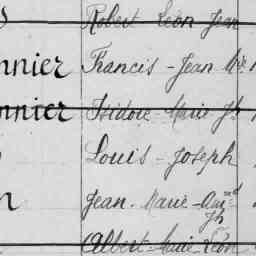 Robert Léon Jean
nnier Francis - Jean Mie
nnier Isidore - Marie Jh
Louis - Joseph
n Jean - Marie - Amd
Jh
Albert - Marie Léon